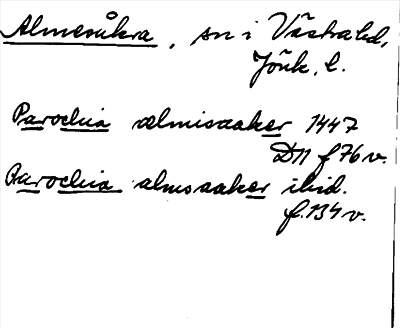 Almesåkra, sn i Västra hd,
Jönk. l.
Parochia almisaaker 1447
D11 f 76 v.
Parochia almsaaker ibid.
f. 134 v.